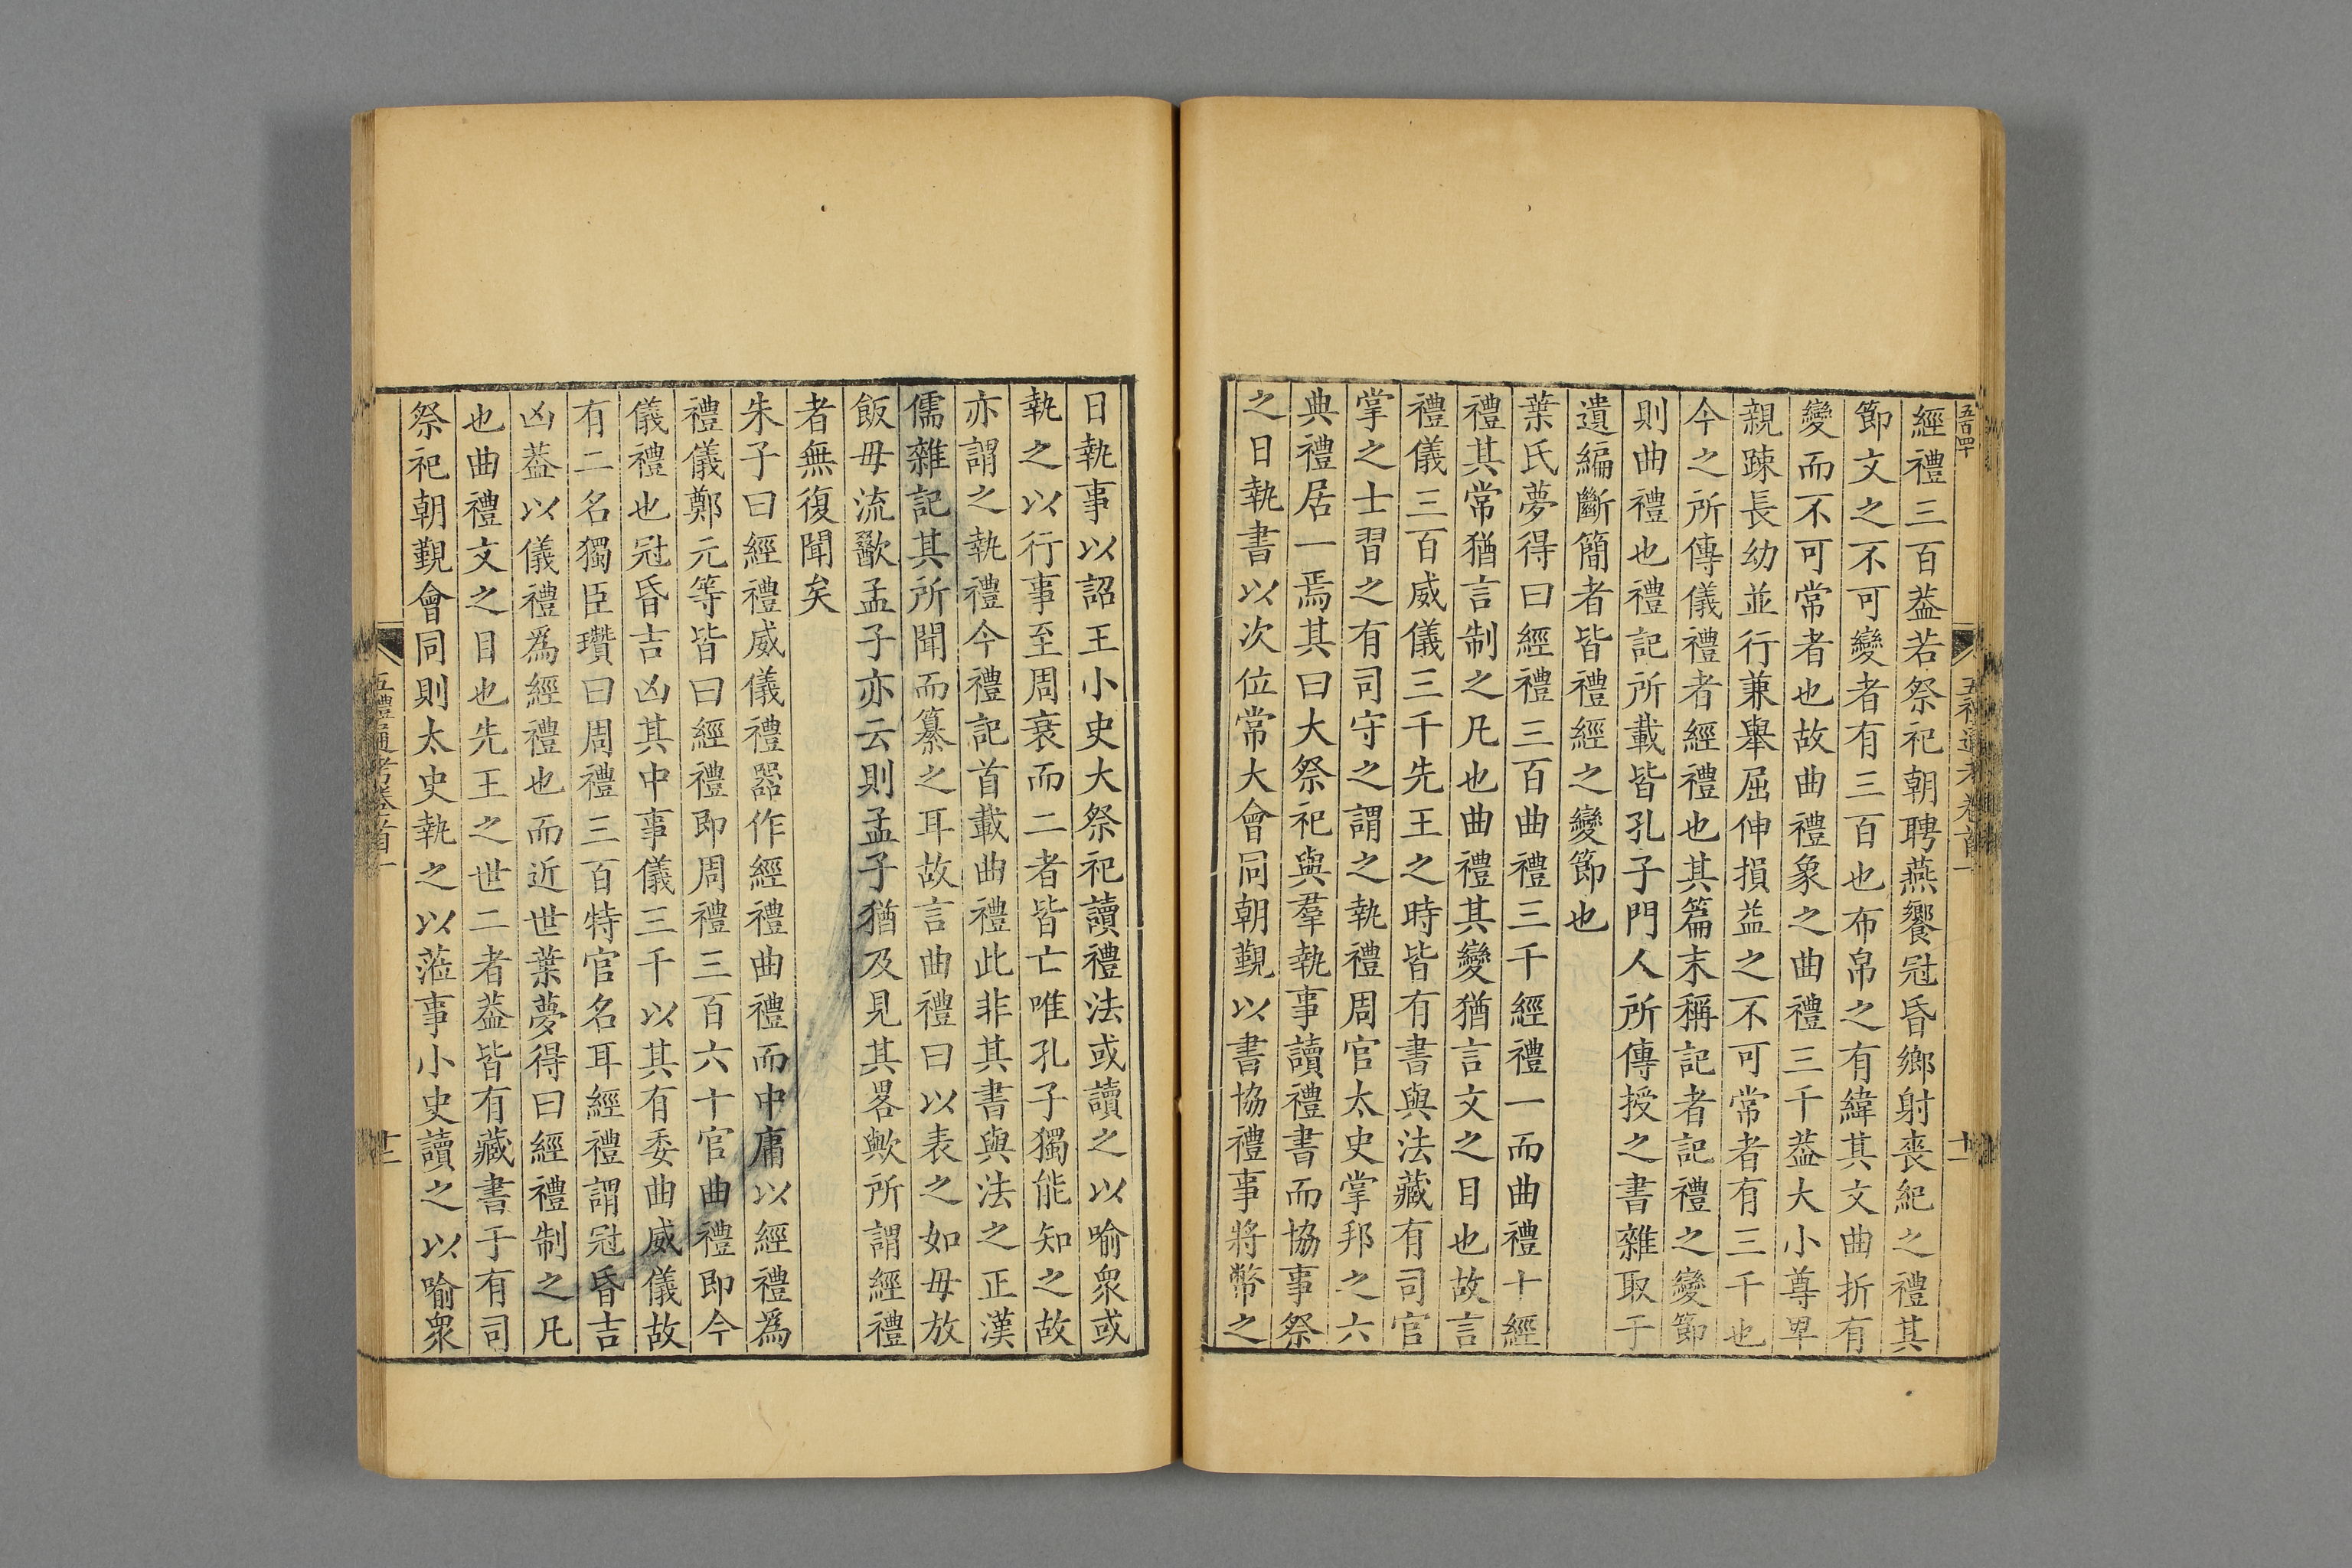 經禮三百葢若祭祀朝聘燕饗冠昏鄉射喪紀之禮其
節文之不可變者有三百也布帛之有緯其文曲折有
變而不可常者也故曲禮象之曲禮三千葢大小尊卑
親踈長幼並行兼舉屈伸損益之不可常者有三千也
今之所傳儀禮者經禮也其篇末稱記者記禮之變節
則曲禮也禮記所載皆孔子門人所傳授之書雜取于
遺編斷簡者皆禮經之變節也
葉氏夢得曰經禮三百曲禮三千經禮一而曲禮十經
禮其常猶言制之凡也曲禮其變猶言文之目也故言
禮儀三百威儀三千先王之時皆有書與法藏有司官
掌之士習之有司守之謂之執禮周官太史掌邦之六
典禮居一焉其曰大祭祀與羣執事讀禮書而協事祭
之日執書以次位常大會同朝覲以書協禮事將幣之
日執事以詔王小史大祭祀讀禮法或讀之以喻衆或
執之以行事至周衰而二者皆亡唯孔子獨能知之故
亦謂之執禮今禮記首載曲禮此非其書與法之正漢
儒雜記其所聞而纂之耳故言曲禮曰以表之如毋放
飯毋流歠孟子亦云則孟子猶及見其畧歟所謂經禮
者無復聞矣
朱子曰經禮威儀禮器作經禮曲禮而中庸以經禮爲
禮儀鄭元等皆曰經禮即周禮三百六十官曲禮即今
儀禮也冠昏吉凶其中事儀三千以其有委曲威儀故
有二名獨臣瓚曰周禮三百特官名耳經禮謂冠昏吉
凶葢以儀禮爲經禮也而近世葉夢得曰經禮制之凡
也曲禮文之目也先王之世二者葢皆有藏書于有司
祭祀朝覲會同則太史執之以蒞事小史讀之以喻衆
五禮通考卷首一